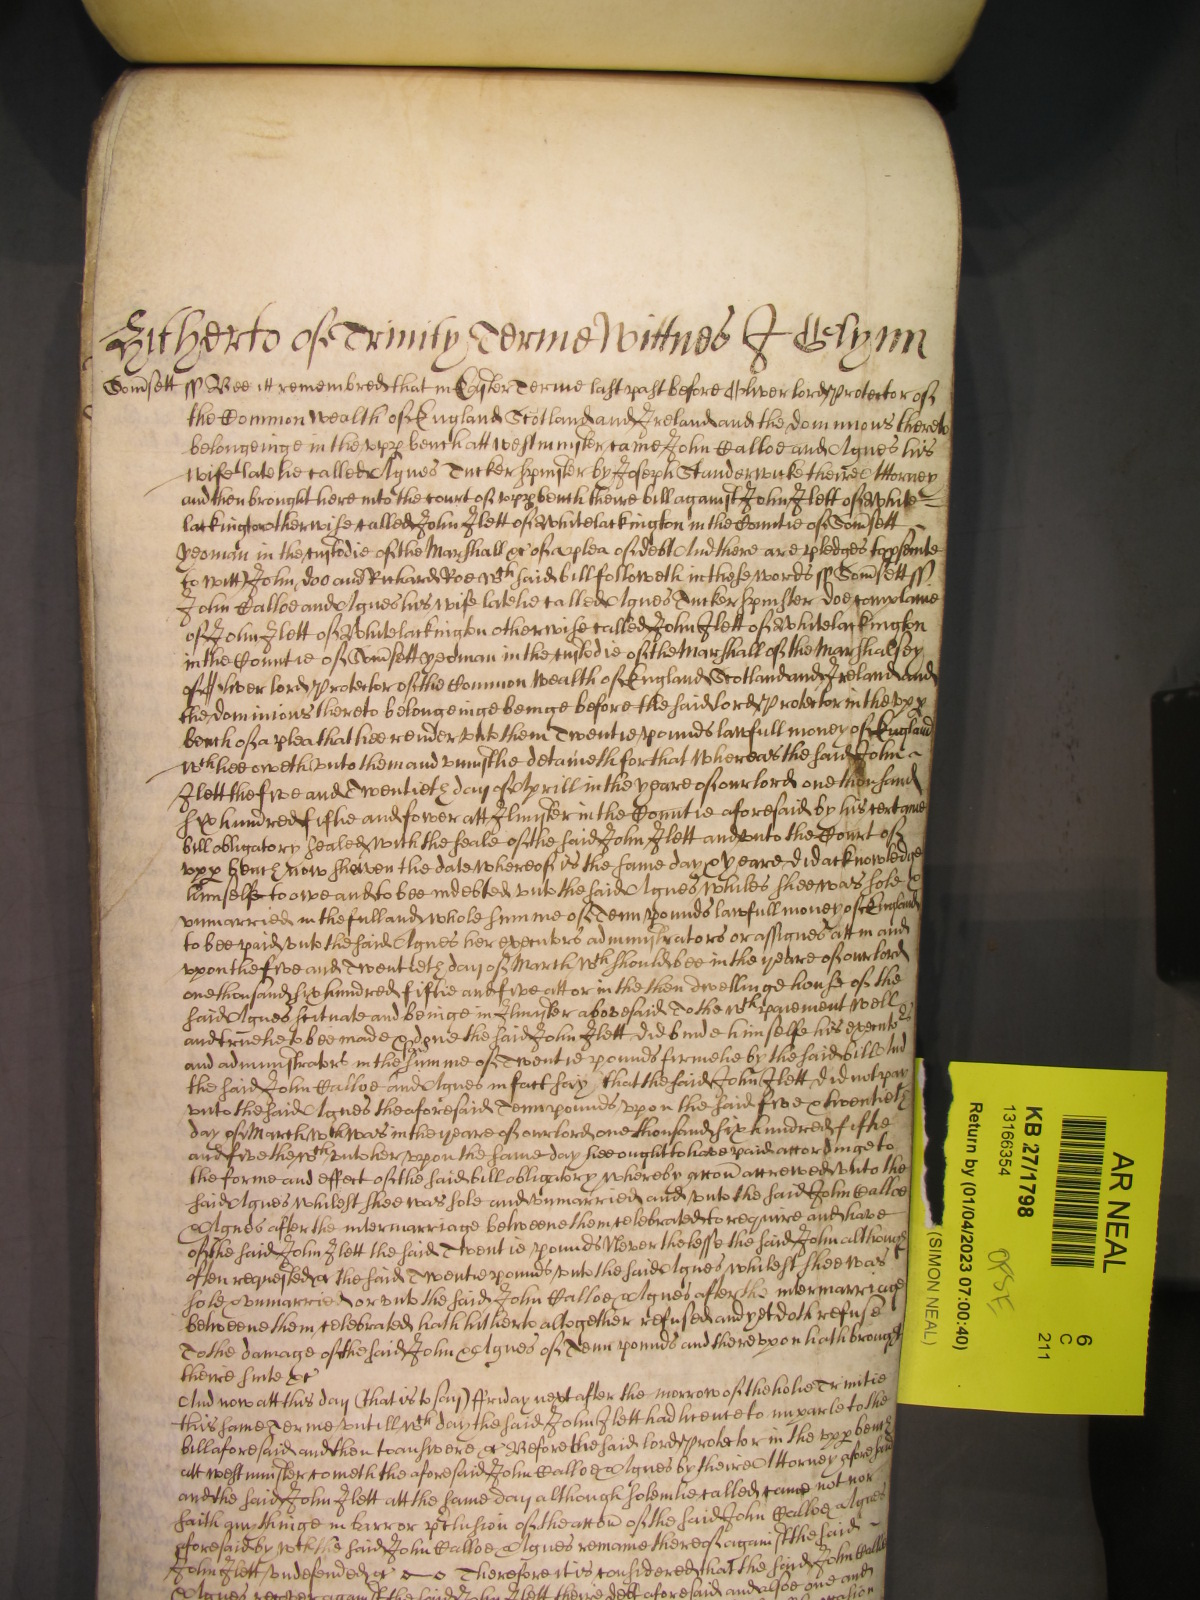 Hitherto of Trinity Terme Wittnes J Glynn
Som̃sett ss Bee itt remembred that in Easter Terme last past before Oliver lord Protector of
the Common Wealth of England Scotland and Ireland and the dominions thereto
belongeinge in the upp bench att Westminster came John Calloe and Agnes his
wife latelie called Agnes Tucker spinster by Joseph Standerwicke theire Attorney
and then brought here into the court of upp bench theire bill against John Jlett of White
lackington otherwise called John Jlett of Whitelackington in the Countie of Som̃sett
yeoman in the custodie of the Marshall &c of a plea of debt And there are pledges to psente
to witt John doo and Richard Roe wch said bill followeth in these words ss Som̃sett ss
John Calloe and Agnes his wife latelie called Agnes Tucker spinster doe complaine
of John Jlett of Whitelackington otherwise called John Jlett of Whitelackington
in the Countie of Som̃sett yeoman in the custodie of the Marshall of the Marshalsey
of Oliver lord Protector of the Common Wealth of England Scotland and Ireland and
the dominions thereto belongeinge beinge before the said lord Protector in the upp
bench of a plea that hee render unto them Twentie pounds lawfull money of England
wch hee oweth unto them and uniustlie detaineth for that Whereas the said John
Jlett the five and Twentieth day of Aprill in the yeare of our lord one thousand
six hundred fiftie and fower att Ilmister in the Countie aforesaid by his certaine
bill obligatory sealed with the seale of the said John Jlett and unto the Court of
upp bench now shewen the date whereof is the same day & yeare did acknowledge
himselfe to owe and to bee indebted unto the said Agnes whiles shee was sole &
unmarried in the full and whole summe of Tenn pounds lawfull money of England
to bee paid unto the said Agnes her executors administrators or assignes att in and
upon the five and Twentieth day of March wch should bee in the yeare of our lord
one thousand six hundred fiftie and five att or in the then dwellinge house of the
said Agnes scituate and beinge in Ilmister abovesaid To the wch paiement well
and truelie to bee made & done the said John Jlett did binde himselfe his executors
and administrators in the summe of Twentie pounds firmelie by the said bill And
the said John Calloe and Agnes in fact say that the said John Jlett did not pay
unto the said Agnes the aforesaid Tenn pounds upon the said five & twentieth
day of March wch was in the yeare of our lord one thousand six hundred fiftie
and five the wch unto her upon the same day hee ought to have paid accordinge to
the forme and effect of the said bill obligatory whereby accon accrewed unto the
said Agnes whilest shee was sole and unmarried and unto the said John Calloe
& Agnes after the intermarriage betweene them celebrated to require and have
of the said John Jlett the said Twentie pounds Neverthelesse the said John although
often requested &c the said Twentie pounds unto the said Agnes whilest shee was
sole & unmarried or unto the said John Calloe & Agnes after the intermarriage
betweene them celebrated hath hitherto altogether refused and yet doth refuse
To the damage of the said John & Agnes of Tenn pounds and thereupon hath brought
theire suite &c
And now att this day (that is to say) ffriday next after the morrow of the holie Trinitie
this same Terme untill wch day the said John Jlett had licence to imparle to the
bill aforesaid and then to answere &c Before the said lord Protector in the upp bench
att westminster cometh the aforesaid John Calloe & Agnes by theire Attorney aforesaid
and the said John Jlett att the same day although solemlie called came not nor
saith any thinge in barror pclusion of the accon of the said John Calloe & Agnes
aforesaid by wch the said John Calloe & Agnes remaine thereof against the said
John Jlett undefended &c Therefore it is considered that the said John Calloe
& Agnes recover against the said John Jlett theire debt aforesaid and alsoe one and
AR NEAL
6
C
211
KB 27/1798
13166354
Return by (01/04/2023 07:00:40)
(SIMON NEAL)